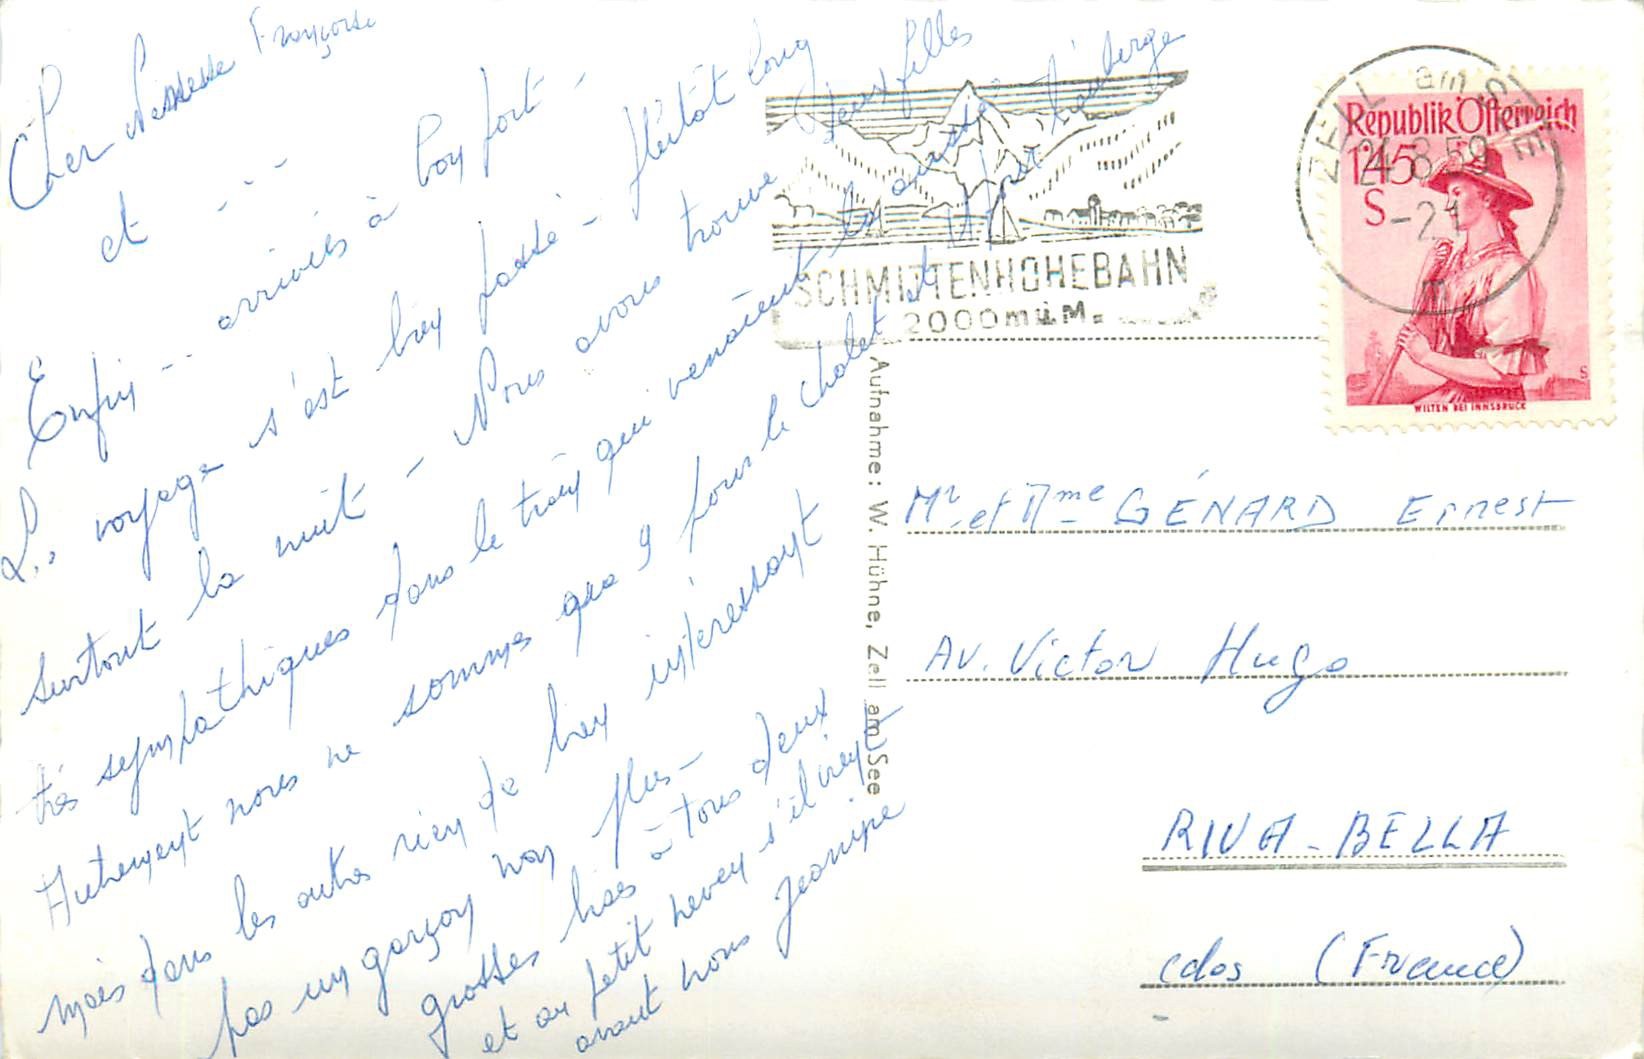 Cher Françoise
et - - -
Enfin - - arrivés à bon port -
Le voyage s'est bien passé - plutôt long
surtout la nuit - Nous avons trouvé deux filles
très sympathiques dans le train qui venaient là aussi
Autrement nous ne sommes que 9 pour le chalet et l'auberge
mais dans les autres rien de bien intéressant
pas un garçon non plus -
grosses bises à tous deux
et au petit neveu s'il vient
avant nous Jeanine
SCHMITTENHÖHEBAHN
2000 m ü. M.
ZELL am SEE
24.8.59 -21
m
Republik Österreich
1'45
S
WILTEN BEI INNSBRUCK
Aufnahme: W. Hühne, Zell am See
Mr et Mme GÉNARD Ernest
Av. Victor Hugo
RIVA-BELLA
cdos (France)